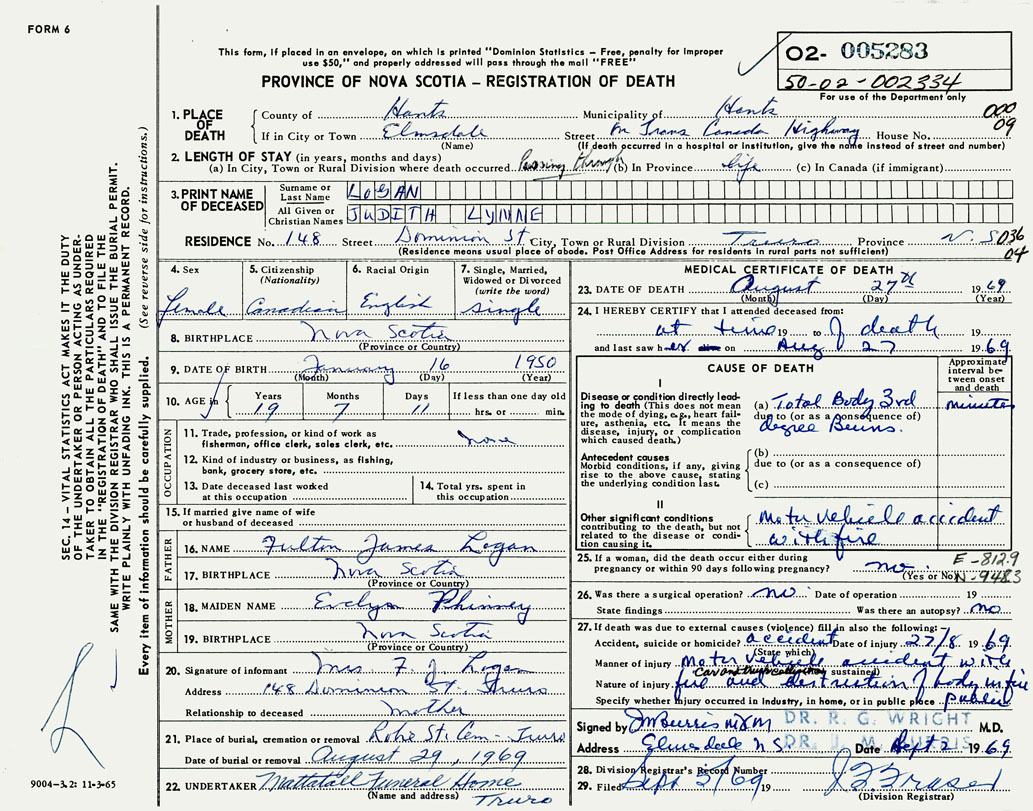 FORM 6
This form, if placed in an envelope, on which is printed "Dominion Statistics – Free, penalty for improper
use $50," and properly addressed will pass through the mail "FREE"
PROVINCE OF NOVA SCOTIA – REGISTRATION OF DEATH
02- 005283
50-02-002334
For use of the Department only
1. PLACE OF DEATH
County of Hants Municipality of Hants 000
If in City or Town Elmsdale Street on Trans Canada Highway House No. 09
(Name) (If death occurred in a hospital or Institution, give the name instead of street and number)
2. LENGTH OF STAY (in years, months and days)
(a) In City, Town or Rural Division where death occurred Passing through (b) In Province life (c) In Canada (if immigrant)
3. PRINT NAME OF DECEASED
Surname or Last Name LOGAN
All Given or Christian Names JUDITH LYNNE
RESIDENCE No. 148 Street Dominion St City, Town or Rural Division Truro Province N.S 036
(Residence means usual place of abode. Post Office Address for residents in rural parts not sufficient) 04
4. Sex
female
5. Citizenship
(Nationality)
Canadian
6. Racial Origin
English
7. Single, Married,
Widowed or Divorced
(write the word)
single
8. BIRTHPLACE Nova Scotia
(Province or Country)
9. DATE OF BIRTH January 16 1950
(Month) (Day) (Year)
10. AGE in
Years Months Days If less than one day old
19 7 11 hrs. or min.
OCCUPATION
11. Trade, profession, or kind of work as
fisherman, office clerk, sales clerk, etc. none
12. Kind of industry or business, as fishing,
bank, grocery store, etc.
13. Date deceased last worked
at this occupation
14. Total yrs. spent in
this occupation
15. If married give name of wife
or husband of deceased
FATHER
16. NAME Fulton James Logan
17. BIRTHPLACE Nova Scotia
(Province or Country)
MOTHER
18. MAIDEN NAME Evelyn Phinney
19. BIRTHPLACE Nova Scotia
(Province or Country)
20. Signature of informant Mrs. F. J. Logan
Address 148 Dominion St. Truro
Relationship to deceased mother
21. Place of burial, cremation or removal Robie St. Cem - Truro
Date of burial or removal August 29, 1969
22. UNDERTAKER Mattatall Funeral Home
(Name and address) Truro
MEDICAL CERTIFICATE OF DEATH
23. DATE OF DEATH August 27th 1969
(Month) (Day) (Year)
24. I HEREBY CERTIFY that I attended deceased from:
at time 19 to of death 19
and last saw her on Aug 27 1969
CAUSE OF DEATH
Approximate interval between onset and death
I
Disease or condition directly leading to death (This does not mean the mode of dying, e.g., heart failure, asthenia, etc. It means the disease, injury, or complication which caused death.)
(a) Total Body 3rd minutes
due to (or as a consequence of)
degree Burns.
Antecedent causes
Morbid conditions, if any, giving rise to the above cause, stating the underlying condition last.
(b)
due to (or as a consequence of)
(c)
II
Other significant conditions
contributing to the death, but not related to the disease or condition causing it.
motor vehicle accident
with fire
25. If a woman, did the death occur either during
pregnancy or within 90 days following pregnancy? no
(Yes or No)
E-812.9
N-948.3
26. Was there a surgical operation? no Date of operation 19
State findings Was there an autopsy? no
27. If death was due to external causes (violence) fill in also the following:
Accident, suicide or homicide? accident Date of injury 27/8 1969
(State which)
Manner of injury motor vehicle accident with
Nature of injury fire and destruction of body in fire
sustained
Specify whether injury occurred in Industry, in home, or in public place public
Signed by J M Burris M.D. DR. R. G. WRIGHT M.D.
Address Elmsdale NS Date Sept 2 1969
28. Division Registrar's Record Number
29. Filed Sept 5/69 19 J. F. Fraser
(Division Registrar)
SEC. 14 – VITAL STATISTICS ACT MAKES IT THE DUTY
OF THE UNDERTAKER OR PERSON ACTING AS UNDERTAKER
TO OBTAIN ALL THE PARTICULARS REQUIRED
IN THE "REGISTRATION OF DEATH" AND TO FILE THE
SAME WITH THE DIVISION REGISTRAR WHO SHALL ISSUE THE BURIAL PERMIT.
WRITE PLAINLY WITH UNFADING INK. THIS IS A PERMANENT RECORD.
Every item of information should be carefully supplied. (See reverse side for instructions.)
9004-3.2: 11-3-65